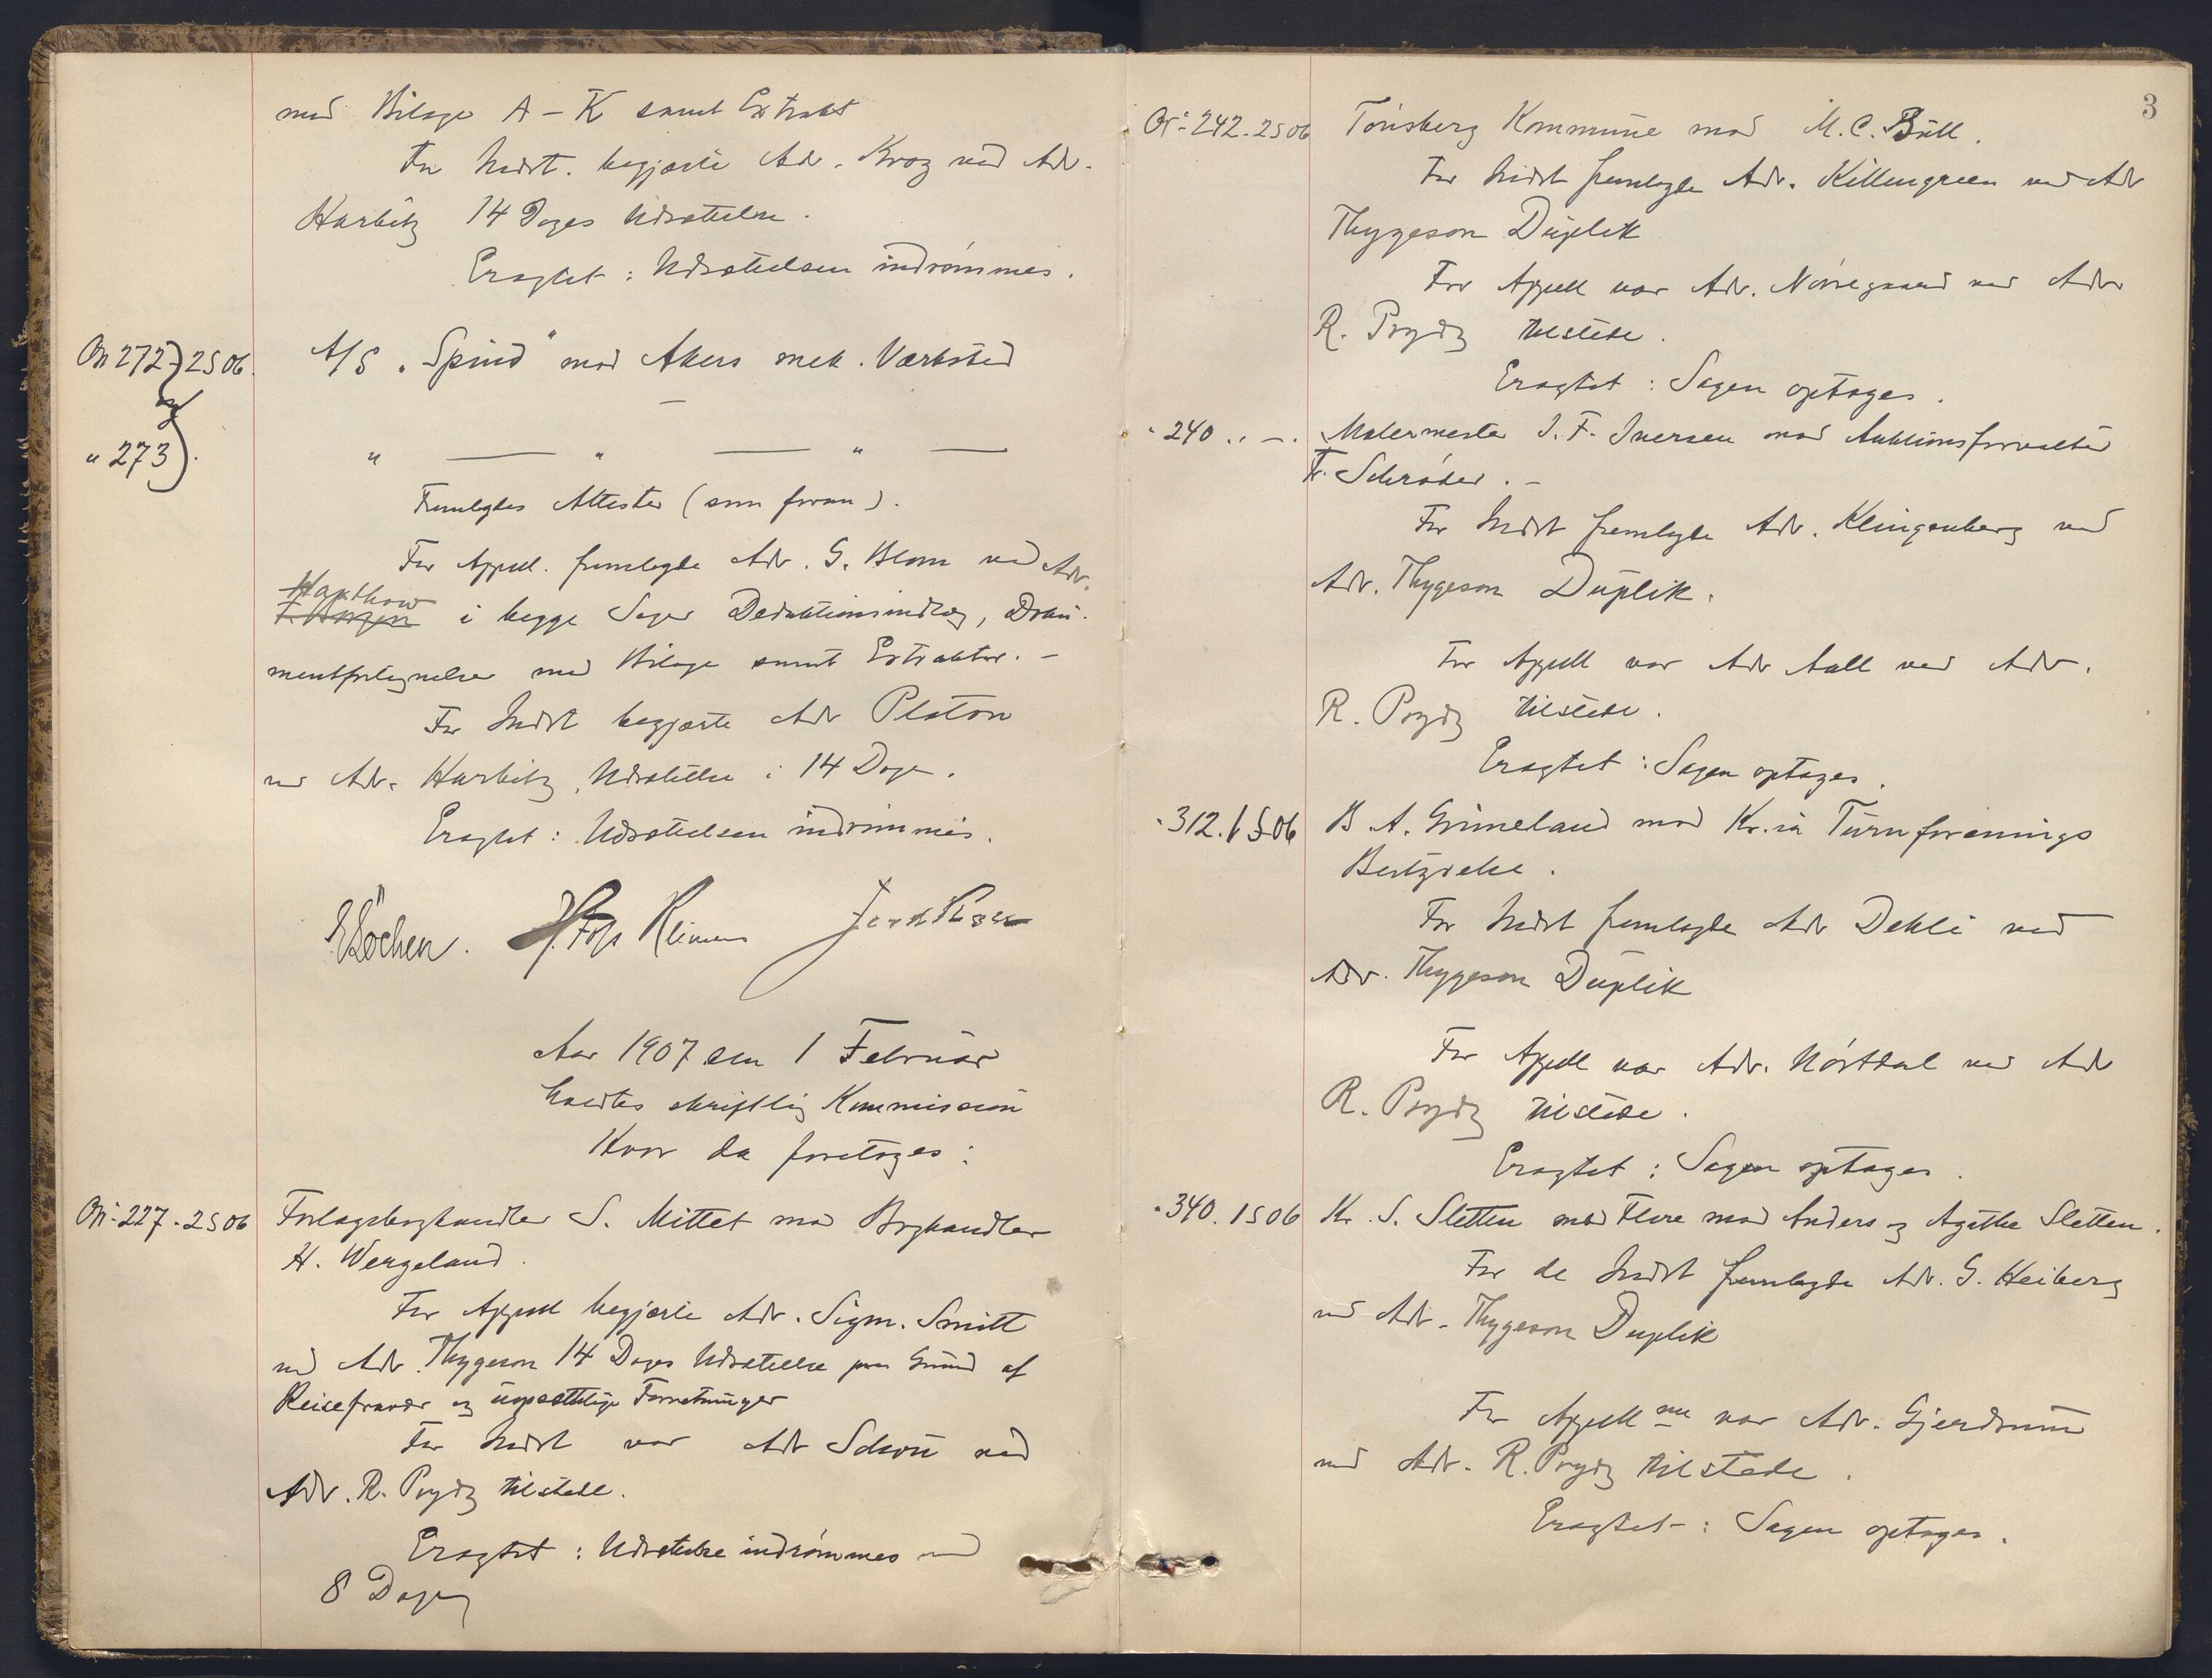 med Bilage A – K samt Extrakt
For Indst. begjærte Adv. Krag ved Adv.
Harbitz 14 Dages Udsættelse.
Eragtet: Udsættelsen indrømmes.
No 272 2S 06. A/S "Spind" mod Akers mek. Værksted
og
" 273. " — " — " —
Fremlagdes Attester (som foran).
For Appell. fremlagde Adv. G. Blom ved Adv.
Hapthow
i begge Sager Deduktionsindlæg, Doku-
mentfortegnelser med Bilage samt Extrakter. –
For Indst begjærte Adv Platou
ved Adv. Harbitz Udsættelse i 14 Dage.
Eragtet: Udsættelsen indrømmes.
E Løchen.
Aar 1907 den 1 Februar
holdtes skriftlig Kommission
Hvor da foretoges:
No 227 - 2S 06 Forlagsboghandler S. Mittet mod Boghandler
H. Wergeland.
For Appell begjærte Adv. Sigm. Smitt
ved Adv Thygeson 14 Dages Udsættelse paa Grund af
Reisefravær og uopsættelige Forretninger
For Indst var Adv Schou ved
Adv. R. Prydz tilstede.
Eragtet: Udsættelse indrømmes med
8 Dage
3
No 242. 2S 06 Tønsberg Kommune mod M. C. Bull.
For Indst fremlagde Adv. Killengreen ved Adv
Thygeson Duplik
For Appell var Adv. Nørregaard ved Adv
R. Prydz tilstede.
Eragtet: Sagen optages.
" 240 " – . Malermester I. F. Iversen mod Auktionsforvalter
Fr. Schrøder. –
For Indst fremlagde Adv. Klingenberg ved
Adv. Thygeson Duplik.
For Appell var Adv Aall ved Adv.
R. Prydz tilstede.
Eragtet: Sagen optages.
" 312. 1 S 06 B. A. Grimeland mod Kr.ia Turnforenings
Bestyrelse.
For Indst fremlagde Adv Dehli ved
Adv. Thygeson Duplik
For Appell var Adv. Nørstdal ved Adv
R. Prydz tilstede.
Eragtet: Sagen optages.
" 340. 1S 06 Kr. S. Sletten med Flere mod Anders og Agathe Sletten.
For de Indst fremlagde Adv. G. Heiberg
ved Adv. Thygeson Duplik
For Appell ne var Adv. Gjerdrum
ved Adv. R. Prydz tilstede.
Eragtet: Sagen optages.